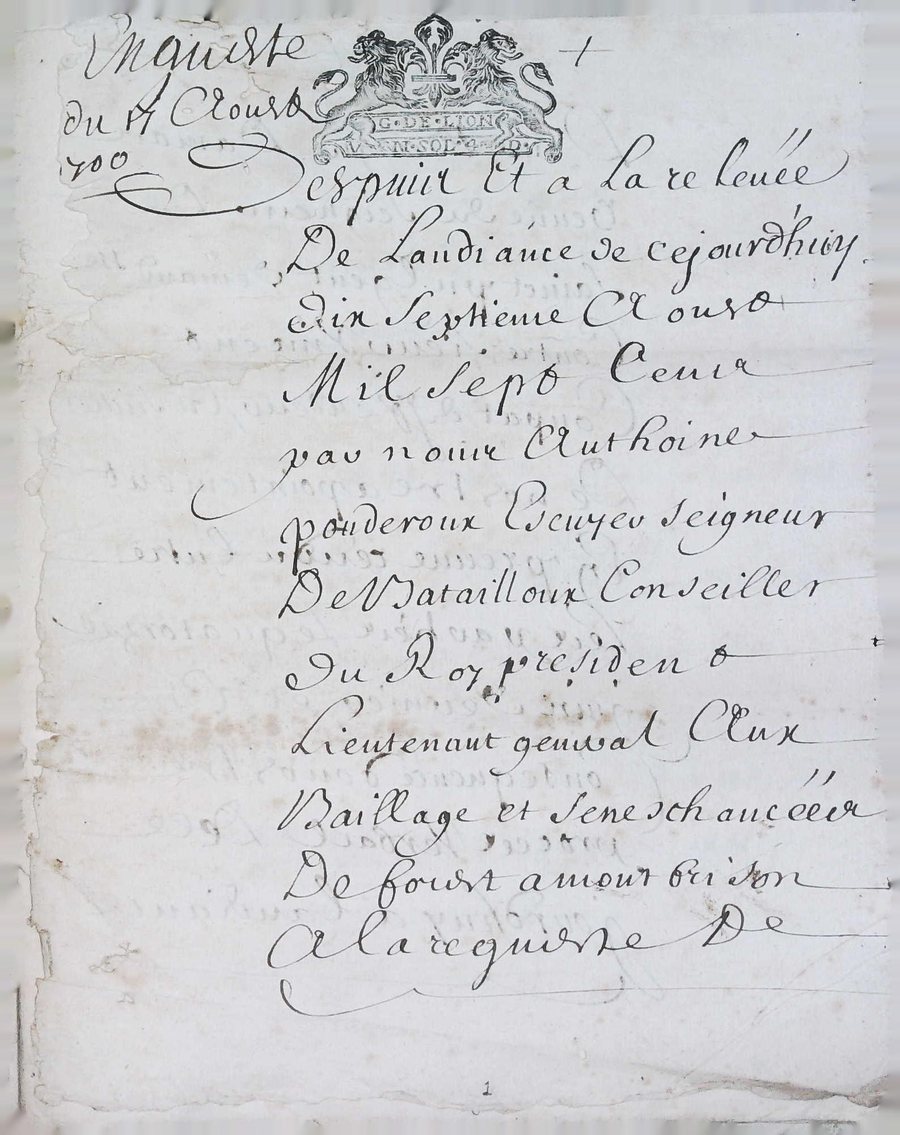 Enqueste
du 17 Aoust
1700
G·DE·LION
V N·SOL·4·D·
Despuis Et a La relevée
De Laudiance de cejourdhuy
dix septieme Aoust
Mil Sept Cens
par nous Anthoine
pouderoux Escuyer seigneur
De Batailloux Conseiller
du Roy president
Lieutenant general Aux
Baillage et Seneschaucéés
De forest a montbrison
A la requeste De
1